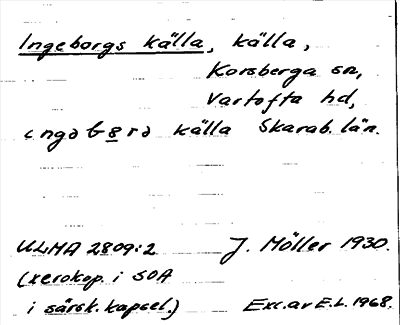 Ingeborgs källa, källa,
Korsberga sn,
Vartofta hd,
ιngəbərə källa Skarab. län.
ULMA 2809:2 J. Möller 1930.
(xerokop. i SOA
i särsk. kapsel.) Exc. av E.L. 1968.